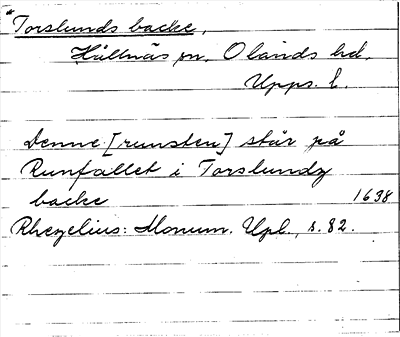 *Torslunds backe,
Hållnäs sn. Olands hd.
Upps. l.
Denne [runsten] står på
Runfallet i Torslundz
backe 1638
Rhezelius: Monum. Upl., s. 82.